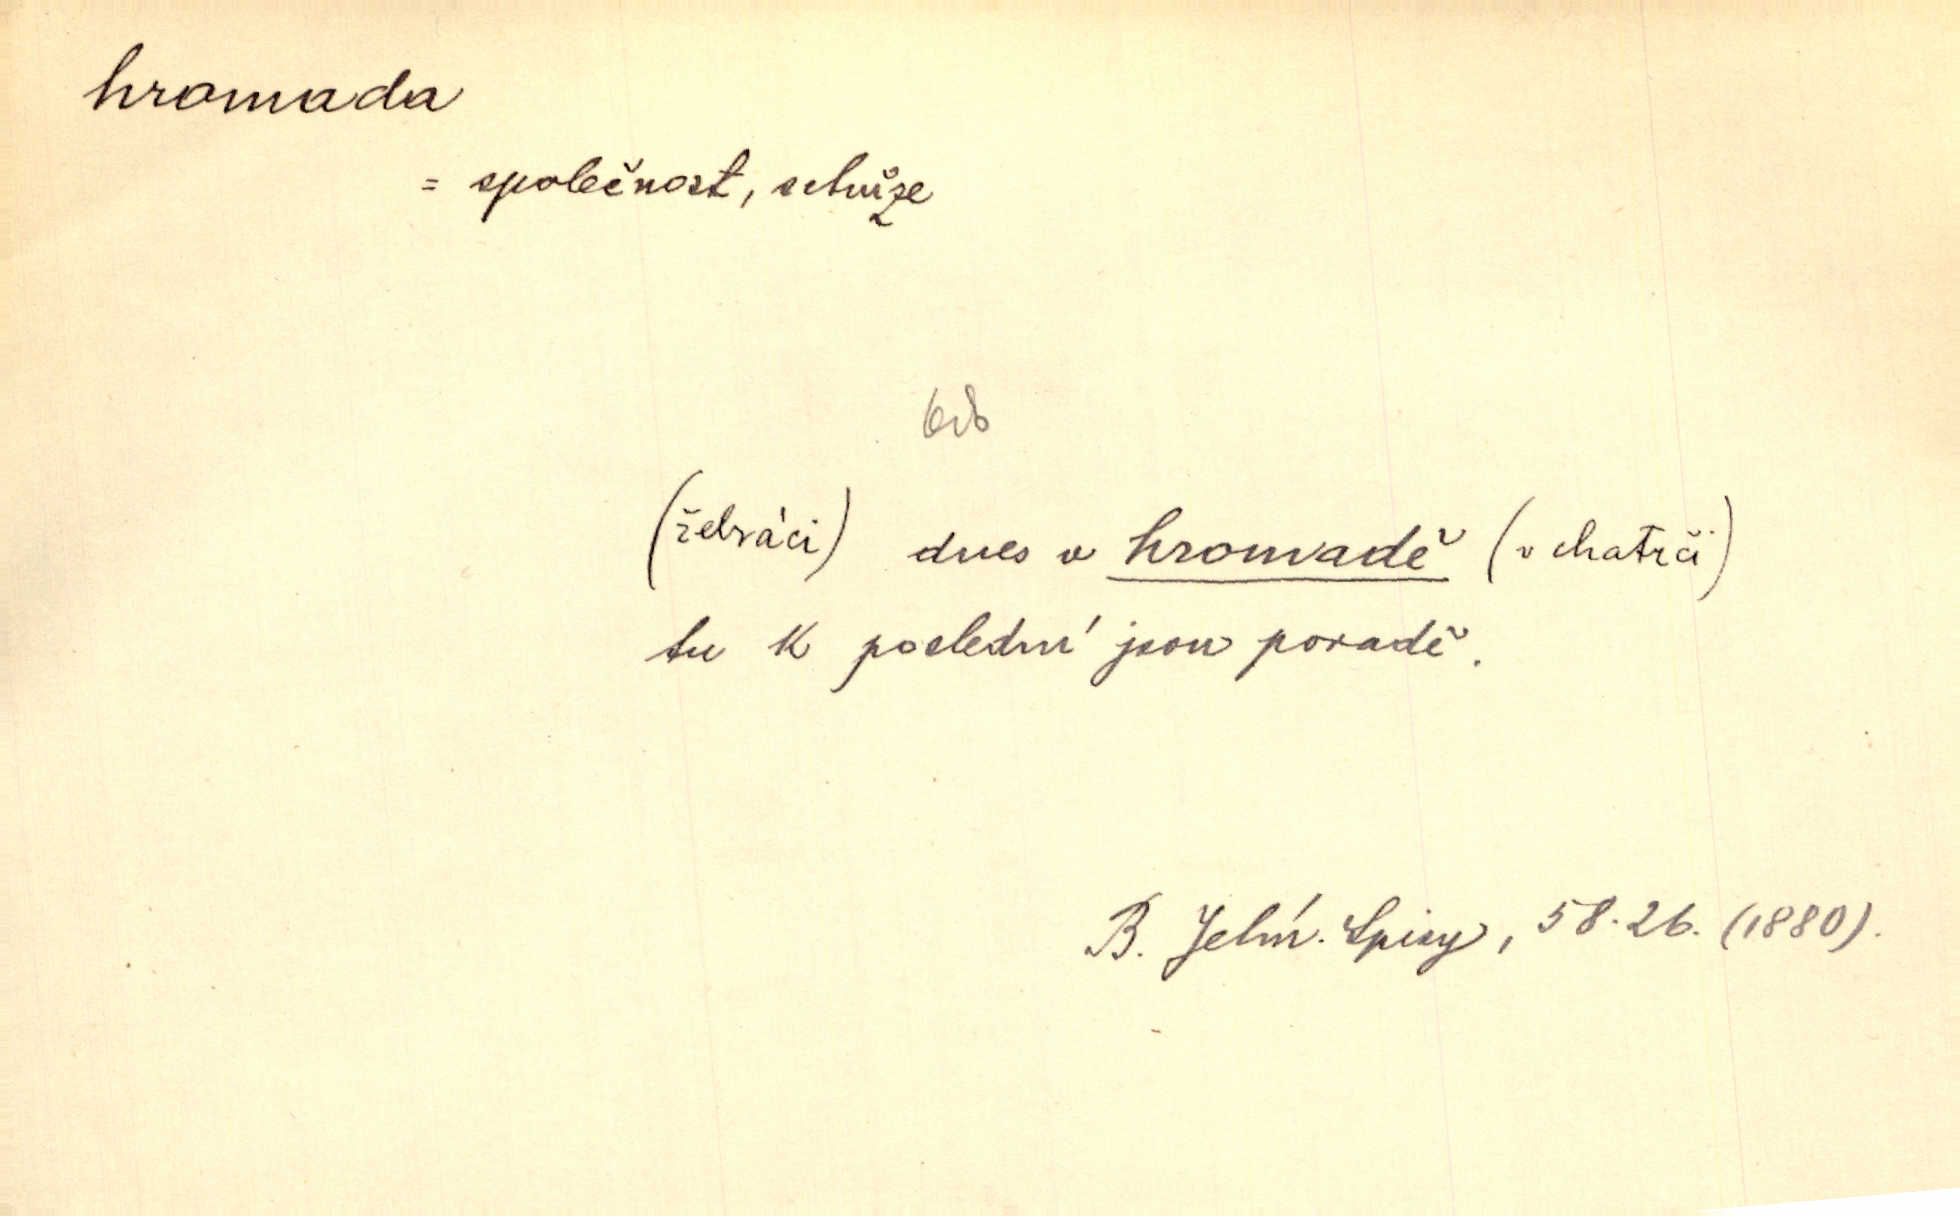 hromada
= společnost, schůze
(žebráci) dnes v hromadě (v chatrči)
tu k poslední jsou poradě.
B. Jelín. Spisy, 58.26. (1880).